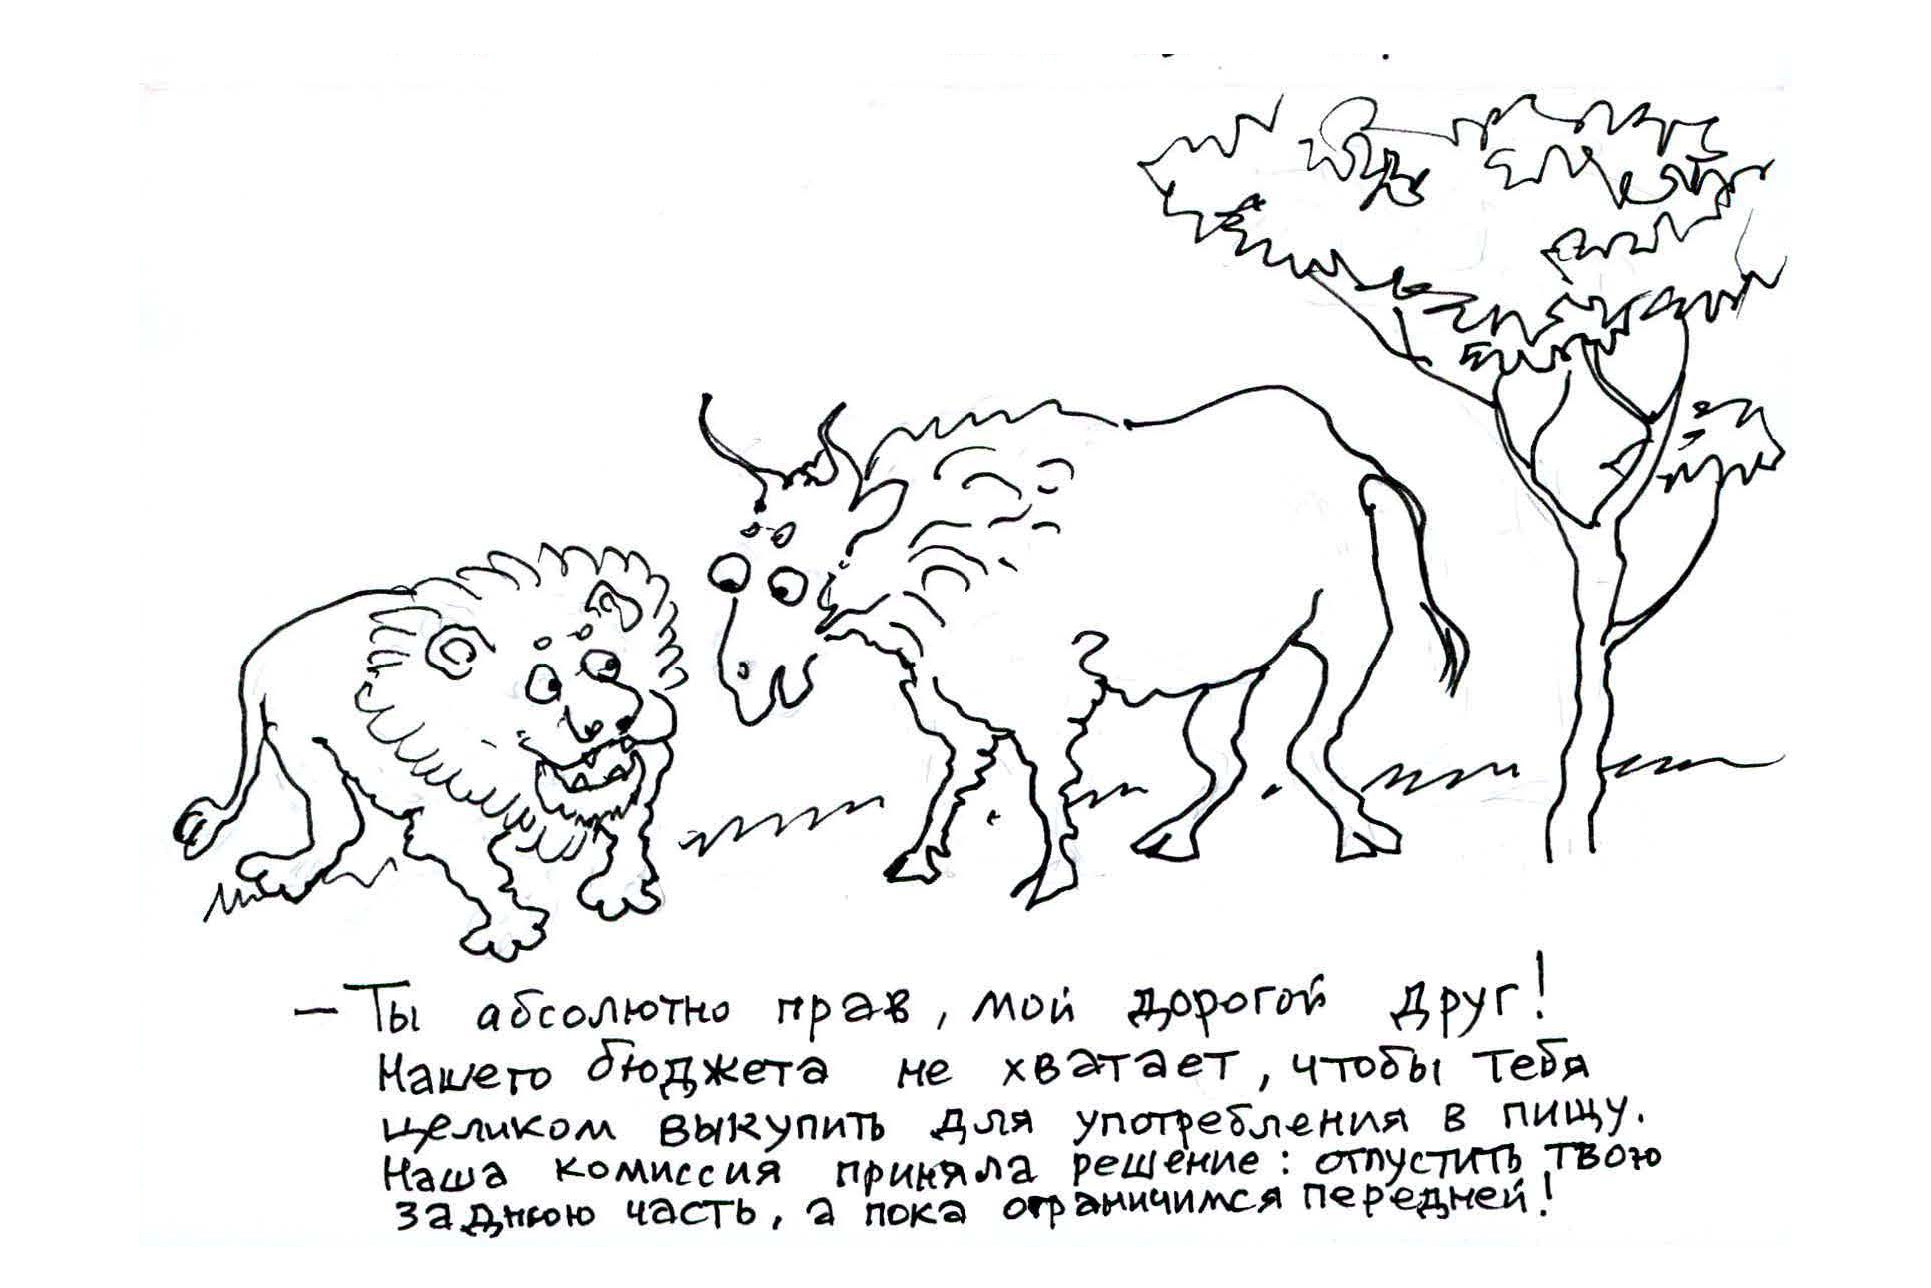 — Ты абсолютно прав, мой дорогой друг!
Нашего бюджета не хватает, чтобы тебя
целиком выкупить для употребления в пищу.
Наша комиссия приняла решение: отпустить твою
заднюю часть, а пока ограничимся передней!